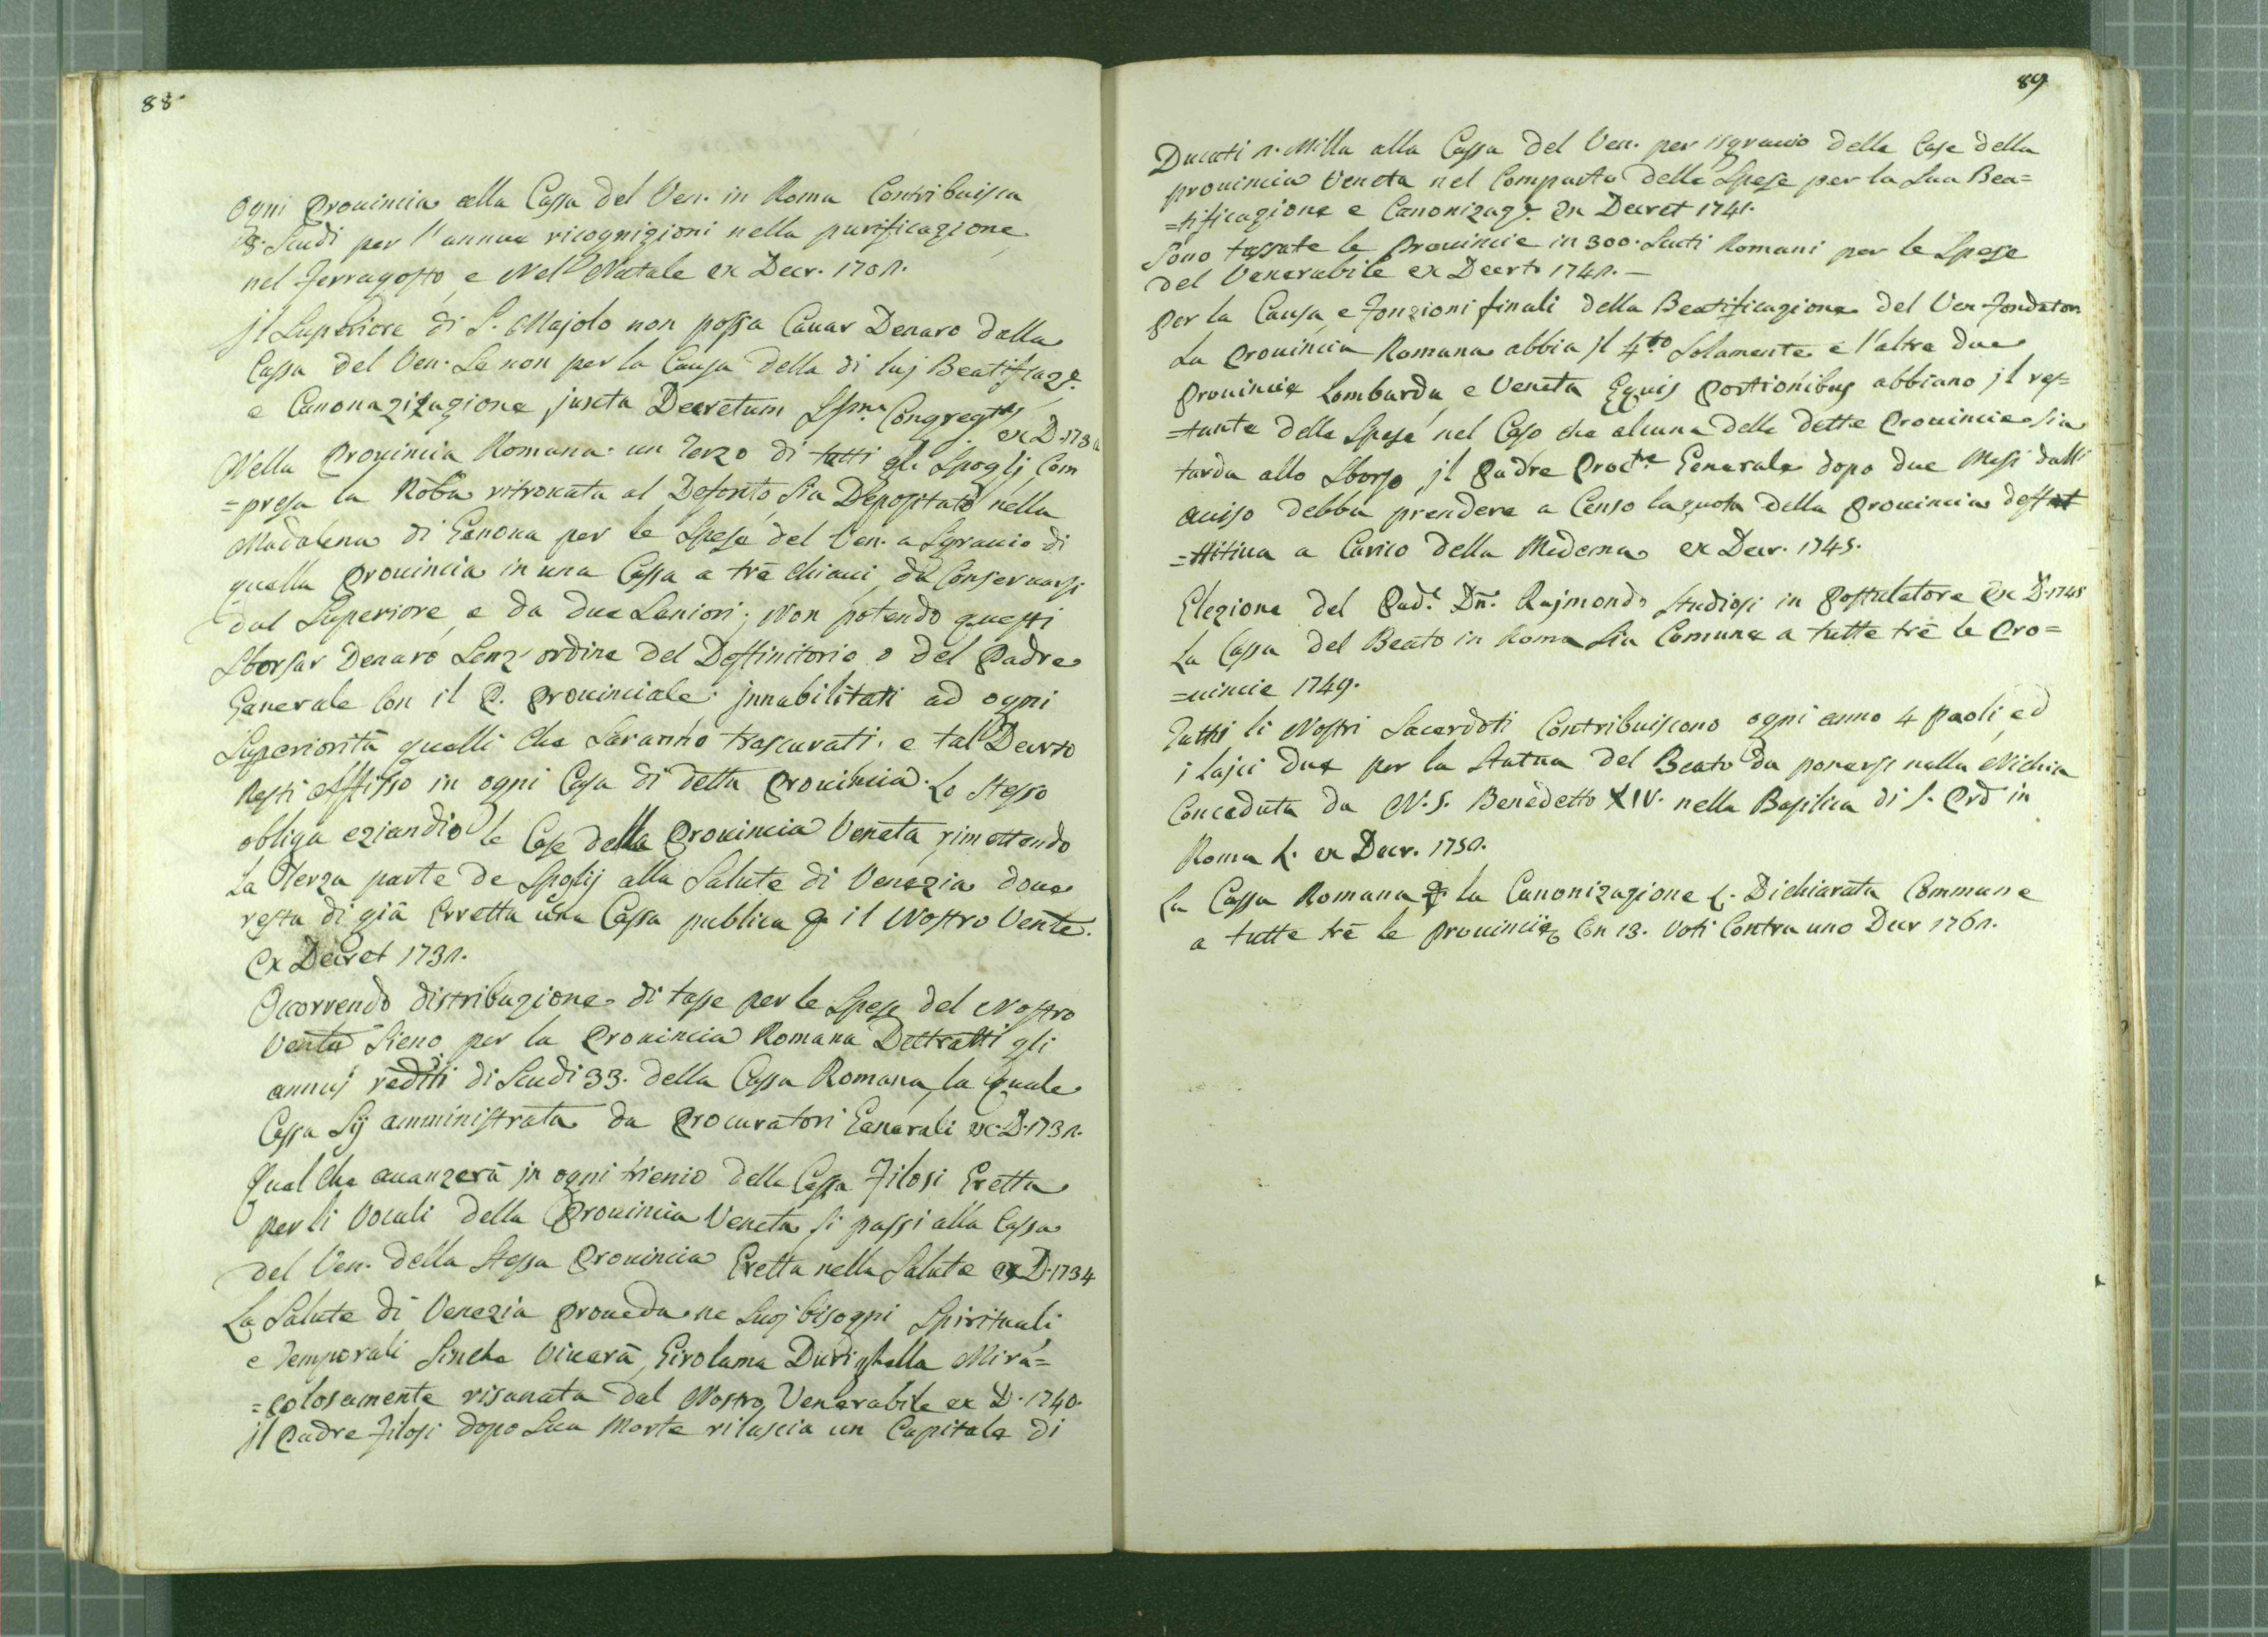 88.
Ogni Provincia alla Cassa del Ven. in Roma Contribuisca
8. Scudi per l'annue ricognizioni nella purificazione,
nel Ferragosto, e Nel Natale ex Decr. 1701.
jl Superiore di S. Majolo non possa Cavar Denaro dalla
Cassa del Ven. Se non per la Causa della di luj Beatificaz.e
e Canonazizazione juxta Decretum Congreg.
ex D. 173
Nella Provincia Romana un Terzo di tutti gli Spoglj Com
=presa la Roba ritrovata al Defonto, sia Depositato nella
Madalena di Genova per le Spese del Ven. a Sgravio di
quella Provincia in una Cassa a trè chiavi, da Conservarsi
dal Superiore, e da due Seniori; Non potendo questi
Sborsar Denaro Senz'ordine del Deffinitorio o del Padre
Generale Con il P. Provinciale. jnnabilitati ad ogni
Superiorità quelli Che Saranno trascurati. e tal Decreto
Resti affisso in ogni Casa di detta Provincia. Lo Stesso
obliga eziandio le Case della Provincia Veneta, rimettendo
La Terza parte de Spoglij alla Salute di Venezia dove
resta di già Erretta una Cassa publica p il Nostro Vente.
Ex Decret 1731.
Occorrendo distribuzione di tasse per le Spese del Nostro
Sieno per la Provincia Romana Dettratti gli
annuj redditi di Scudi 33. della Cassa Romana, la quale
Cassa Sij amministrata da Procuratori Generali ex D. 1731.
Quel Che avanzerà jn ogni trienio della Cassa Filosi Eretta
per li Vocali della Provincia Veneta, si passi alla Cassa
del Ven. della Stessa Provincia Eretta nella Salute ex D. 1734
La Salute di Venezia proveda ne suoj bisogni Spirituali
e Temporali Sinche Viverà, Girolama Durighella Mira=
=colosamente risanata dal Nostro Venerabile ex D. 1740.
jl Padre Filosi dopo Sua Morte rilascia un Capitale di
89
Ducati n. Milla alla Cassa del Ven. per isgravio delle Case della
provincia Veneta nel Comparto delle Spese per la Sua Bea=
=tificazione e Canonizaz.e Ex Decret 1741.
Sono tassate le Provincie in 300. Scuti Romani per le Spese
del Venerabile ex Decrto 1741. –
Per la Causa e Fonzioni finali della Beatificazione del Ven Fondator
La Provincia Romana abbia jl 4.to Solamente e l'altre due
Provincie Lombarda, e Veneta Equis Portionibus abbiano jl res=
=tante delle Spese nel Caso che alcuna delle dette Provincie Sia
tarda allo Sborso, jl Padre Proc.re Generale dopo due Mesi dall'
aviso debba prendere a Censo la quota della Provincia deff
=ttitiva a Carico della Medema ex Decr. 1745.
Elezione del Pad.e Dn. Rajmondo Studiosi in Postulatore Ex D. 1745
La Cassa del Beato in Roma Sia Comune a tutte trè le Pro=
=vincie 1749.
Tutti li Nostri Sacerdoti Contribuiscono ogni anno 4 paoli, ed
i laici due per la Statua del Beato da ponersi nella Nichia
Conceduta da N. S. Benedetto XIV. nella Basilica di S. in
Roma ex Decr. 1750.
La Cassa Romana p la Canonizazione Dichiarata Commune
a tutte trè le Provincie Con 13. Voti Contra uno Decr 1761.